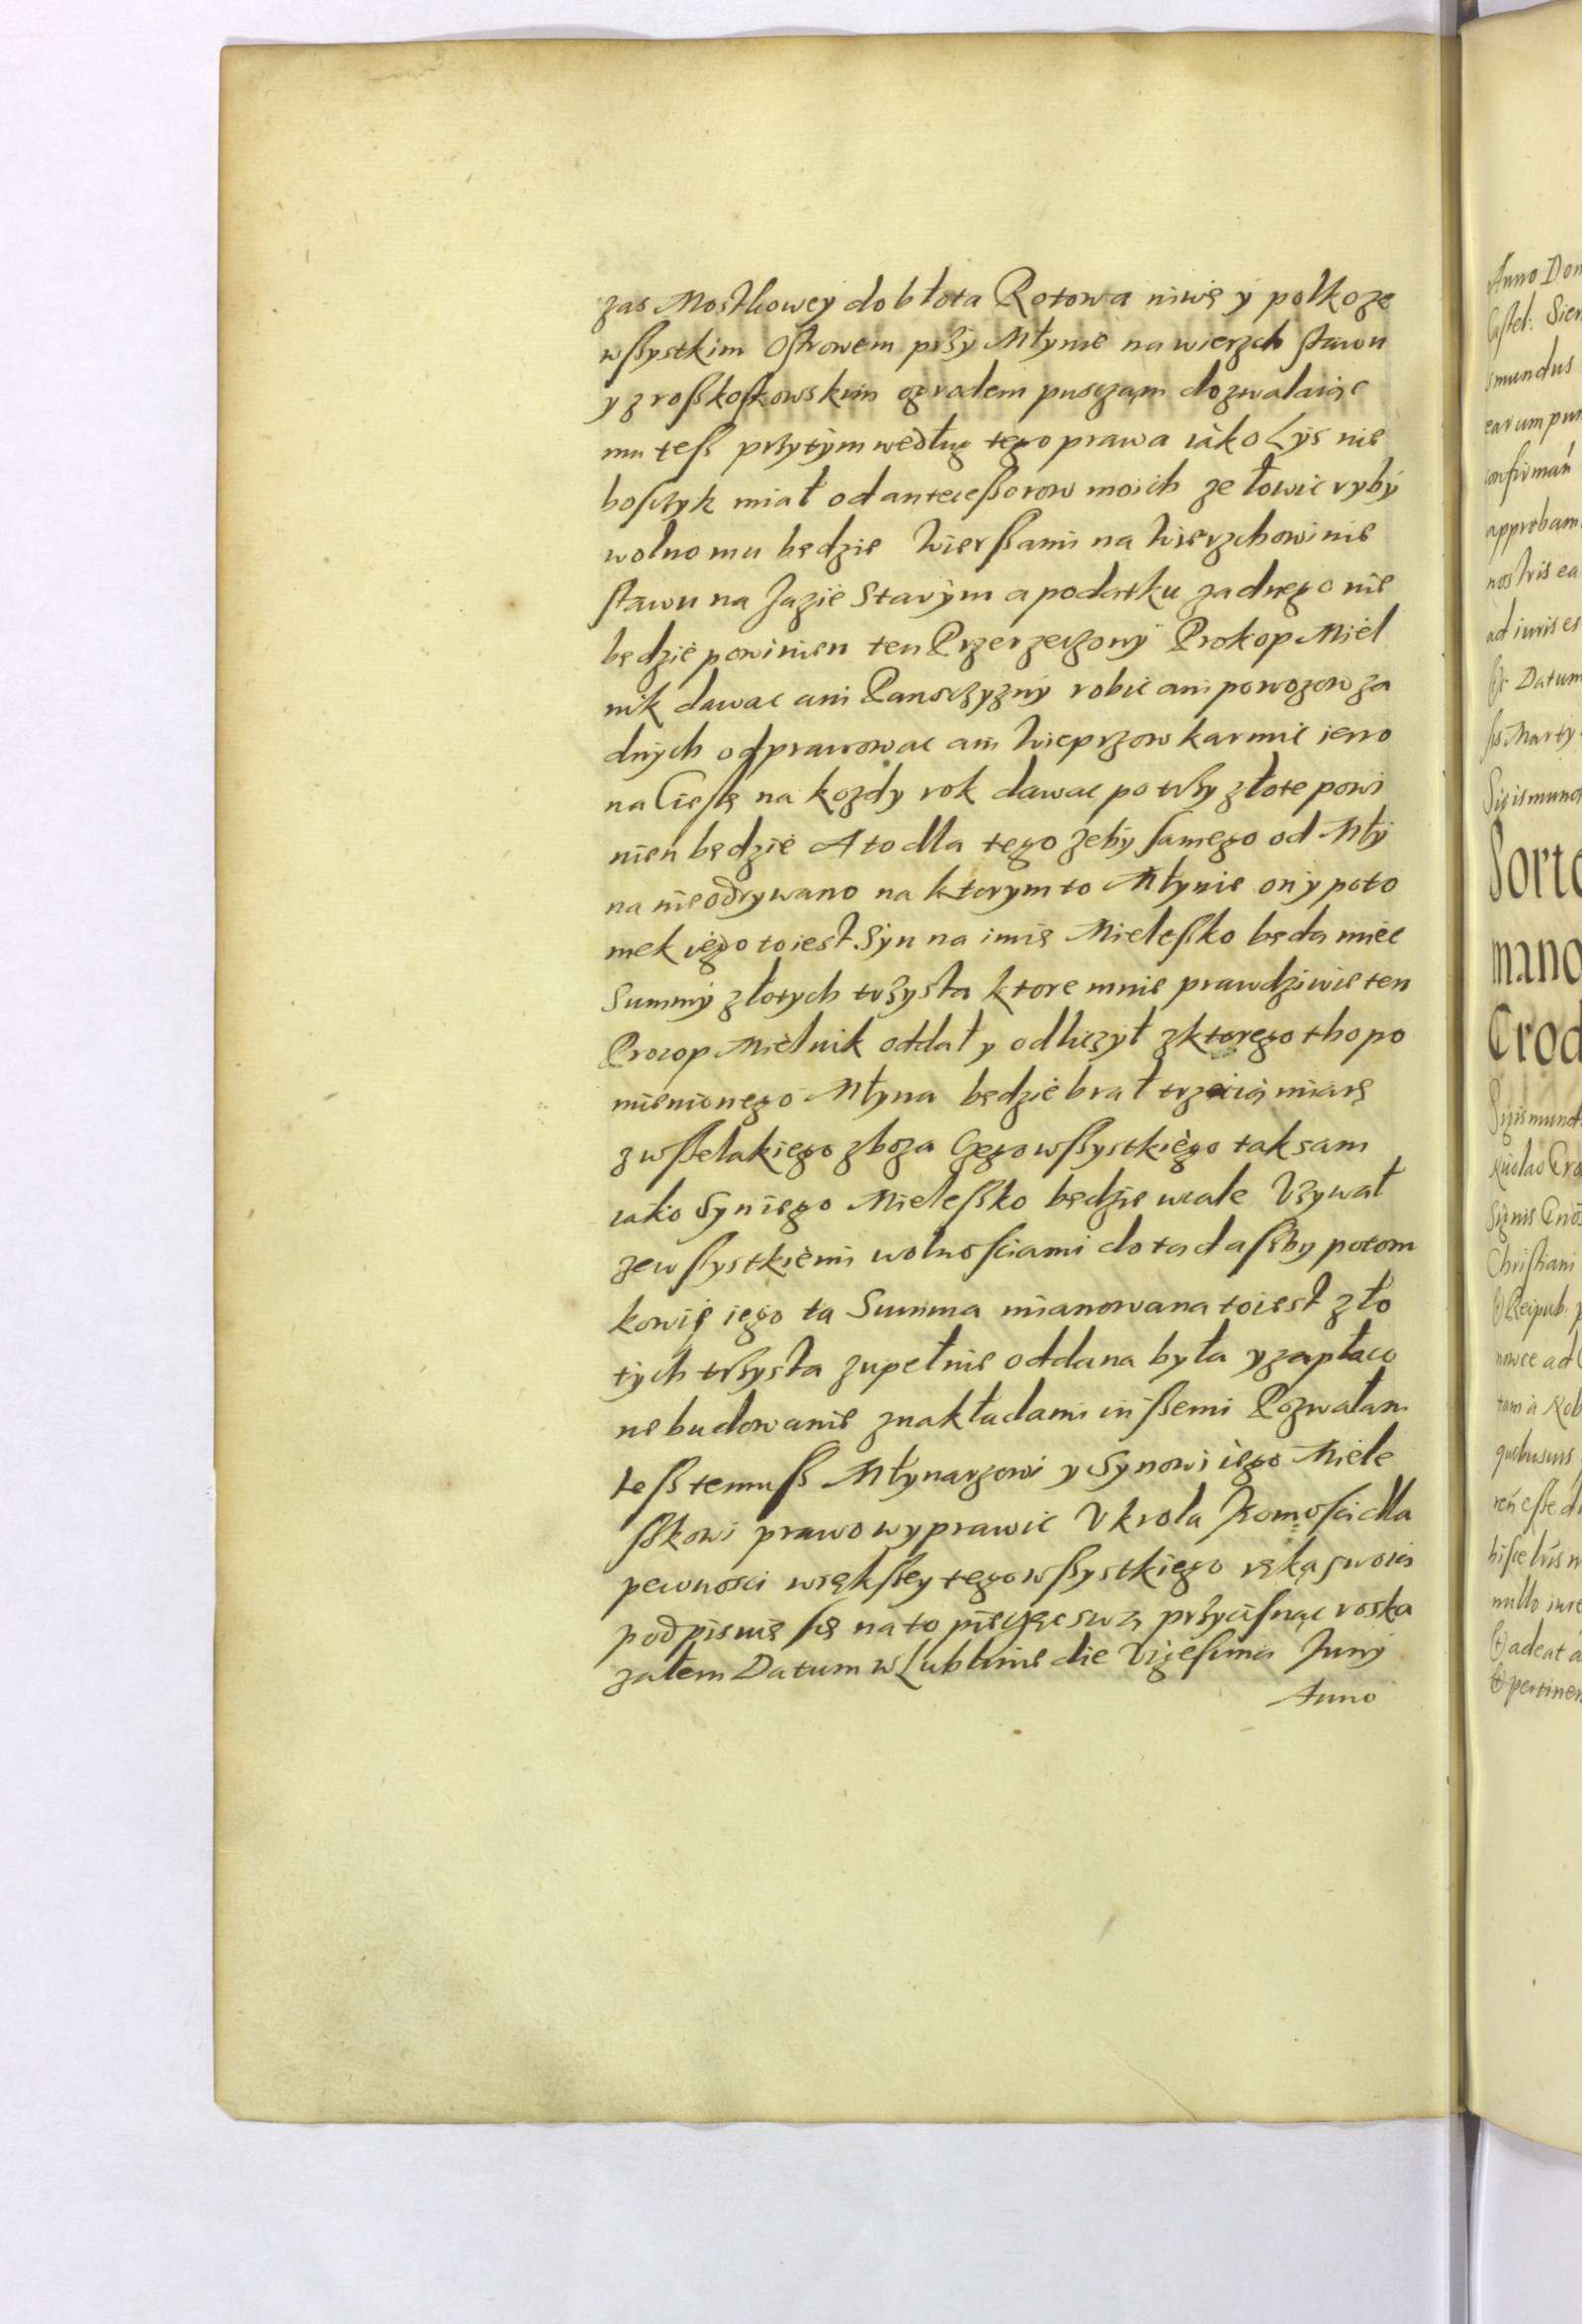 zas Mostkowey do błota Rotowa niwę y polko ze
wßystkim Ostrowem przy Młynie na wierzch stawu
y z roßkoszkowskim ogrodem puszczam dozwalaiąc
mu teß przytym według tego prawa iako Lys nie
bosczyk miał od anteceßorow moich ze łowic ryby
wolno mu będzie wierßami na wierzchowinie
stawu na Jazie Starym a podatku zadnego nie
będzie powinien ten Przerzeczony Prokop Miel
nik dawac ani Pansczyzny robic ani powozow za
dnych odprawowac ani wieprzow karmic ieno
na Cieslę na kozdy rok dawac po trzy złote powi
nien będzie A to dla tego zeby samego od Mły
na nie odrywano na ktorym to Młynie on y poto
mek iego to iest Syn na imię Mieleßko będą miec
Summy złotych trzysta ktore mnie prawdziwie ten
Procop Mielnik oddał y odliczył z ktorego tho po
mienionego Młyna będzie brał trzecią miarę
z wßelakiego zboza Czego wßystkiego tak sam
iako Syn iego Mieleßko będzie wcale Uzywał
ze wßystkiemi wolnosciami dotąd aßby potom
kowię iego ta Summa mianowana to iest zło
tych trzysta zupełnie oddana była y zapłaco
ne budowanie z nakładami inßemi Pozwalam
teß temuß Młynarzowi y Synowi iego Miele
ßkowi prawo wyprawic U krola Jeomosci dla
pewnosci więkßey tego wßystkiego ręką swoią
podpisuię się na to pieczęc swą przycisnąc roska
załem Datum w Lublinie die Vigesima Juny
Anno
Anno Dom
Castel: Sier
smundus
earum pun
confirman
approbam
nostris ea
ad iuris es
Datum
Marty
Sigismund
Sorte
mano
Crod
Sigismund
Nicolao Cro
Signis
Christiani
Reipub: p
nowce ad
tam a Rob
quibusuis
ren esse di
nullo iure
adeat a
pertinen